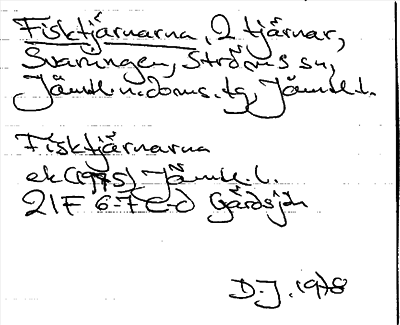 Fisktjärnarna, 2 tjärnar,
Svaningen, Ströms sn,
Jämtl. n. doms. tg, Jämtl. l.
Fisktjärnarna
ek (1975) Jämtl. l.
21F 6-7 C-D Gårdsjön
D. J. 1978